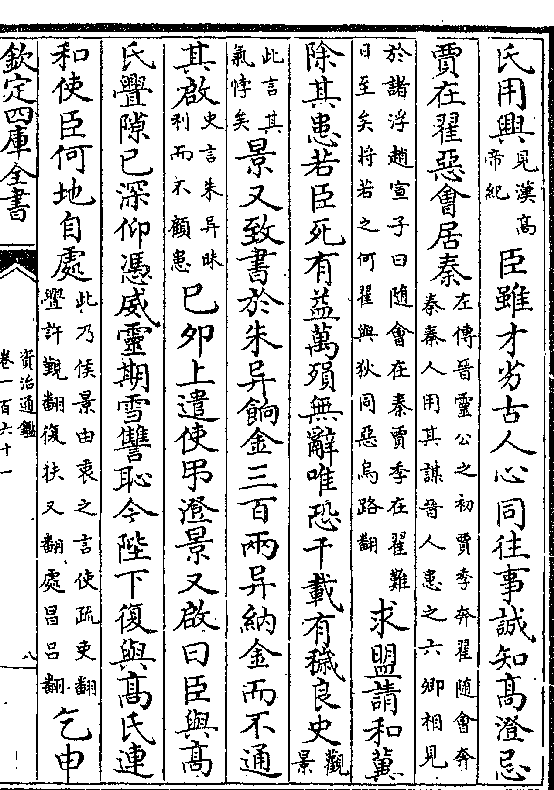 氏用興見漢髙帝紀臣雖才劣古人心同往事誠知髙澄忌
賈在翟惡會居秦左傳晉靈公之初賈季奔翟隨會奔秦秦人用其謀晉人患之六卿相見
於諸浮趙宣子曰隨會在秦賈季在翟難日至矣将若之何翟與狄同惡烏路翻求盟請和冀
除其患若臣死有益萬殞無辭唯恐千載有穢良史觀景
此言其氣悖矣景又致書於朱异餉金三百兩异納金而不通
其啟史言朱异昧利而不顧患己卯上遣使弔澄景又啟曰臣與髙
氏釁隙已深仰憑威靈期雪讐恥今陛下復與髙氏連
和使臣何地自處此乃侯景由衷之言使疏吏翻釁許覲翻復扶又翻處昌呂翻乞申
欽定四庫全書
資治通鑑
卷一百六十一
八